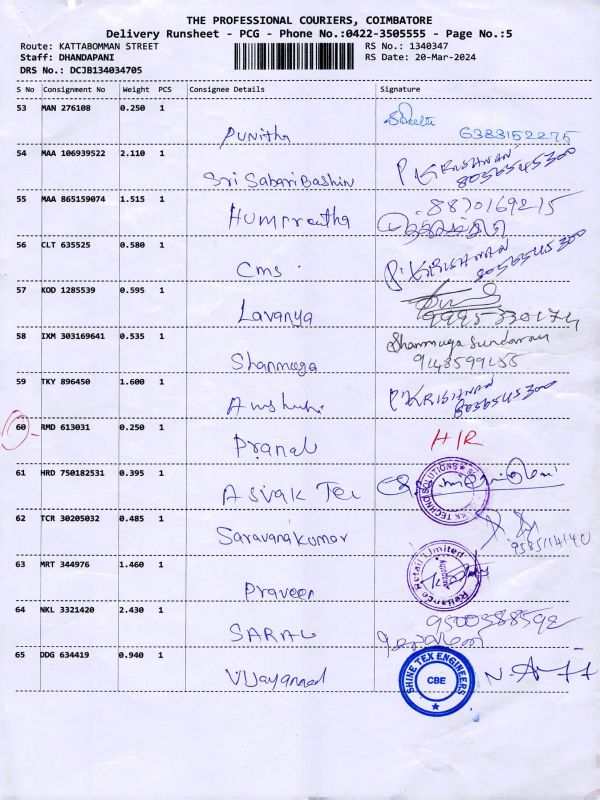 THE PROFESSIONAL COURIERS, COIMBATORE
Delivery Runsheet - PCG - Phone No.:0422-3505555 - Page No.:5
Route: KATTABOMMAN STREET
Staff: DHANDAPANI
DRS No.: DCJB134034705
RS No.: 1340347
RS Date: 20-Mar-2024
S No Consignment No Weight PCS Consignee Details Signature
53 MAN 276108 0.250 1
Punitha 6383152275
54 MAA 106939522 2.110 1
Sri SabariBashin P. KRISHNAN 8056545300
55 MAA 865159074 1.515 1
8870169215
56 CLT 635525 0.580 1
Cms P. KRISHNAN 8056545300
57 KOD 1285539 0.595 1
Lavanya
58 IXM 303169641 0.535 1
Shanmuga Shanmuga Sundaram
59 TKY 896450 1.600 1
P. KRISHNAN 8056545300
60 RMD 613031 0.250 1
Pranav H/R
61 HRD 750182531 0.395 1
ASVAK Tec
62 TCR 30205032 0.485 1
Saravanakumar
63 MRT 344976 1.460 1
Praveen Reliance Retail Limited
64 NKL 3321420 2.430 1
SARAL 9500388592
65 DDG 634419 0.940 1
Vijayanand SHINE TEX ENGINEERS CBE